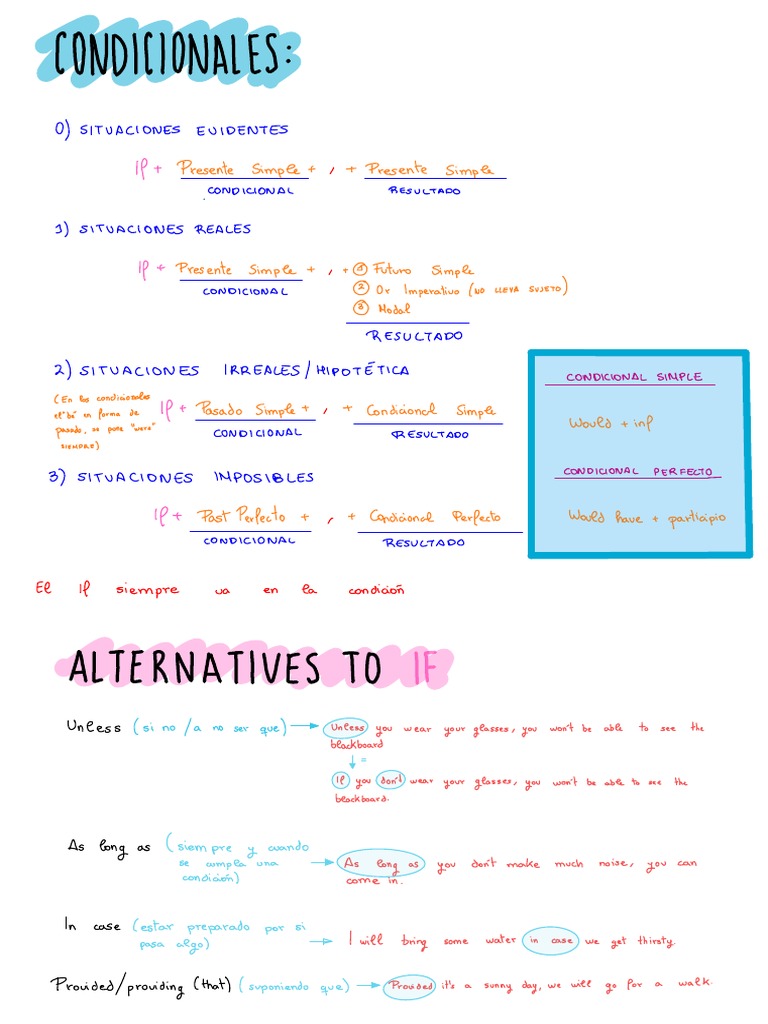 CONDICIONALES:
0) SITUACIONES EVIDENTES
If + Presente Simple + , + Presente Simple
CONDICIONAL RESULTADO
1) SITUACIONES REALES
If + Presente Simple + , + ① Futuro Simple
② Or Imperativo (NO LLEVA SUJETO)
③ Modal
CONDICIONAL
RESULTADO
2) SITUACIONES IRREALES/HIPOTÉTICA
(En los condicionales
el "be" en forma de
pasado, se pone "were"
SIEMPRE)
If + Pasado Simple + , + Condicional Simple
CONDICIONAL RESULTADO
3) SITUACIONES IMPOSIBLES
If + Past Perfecto + , + Condicional Perfecto
CONDICIONAL RESULTADO
CONDICIONAL SIMPLE
Would + inf
CONDICIONAL PERFECTO
Would have + participio
El If siempre va en la condición
ALTERNATIVES TO IF
Unless (si no / a no ser que) → Unless you wear your glasses, you won't be able to see the
blackboard
↓ =
If you don't wear your glasses, you won't be able to see the
blackboard.
As long as (siempre y cuando
se cumpla una
condición)
→ As long as you don't make much noise, you can
come in.
In case (estar preparado por si
pasa algo)
→ I will bring some water in case we get thirsty.
Provided/providing (that) (suponiendo que) → Provided it's a sunny day, we will go for a walk.